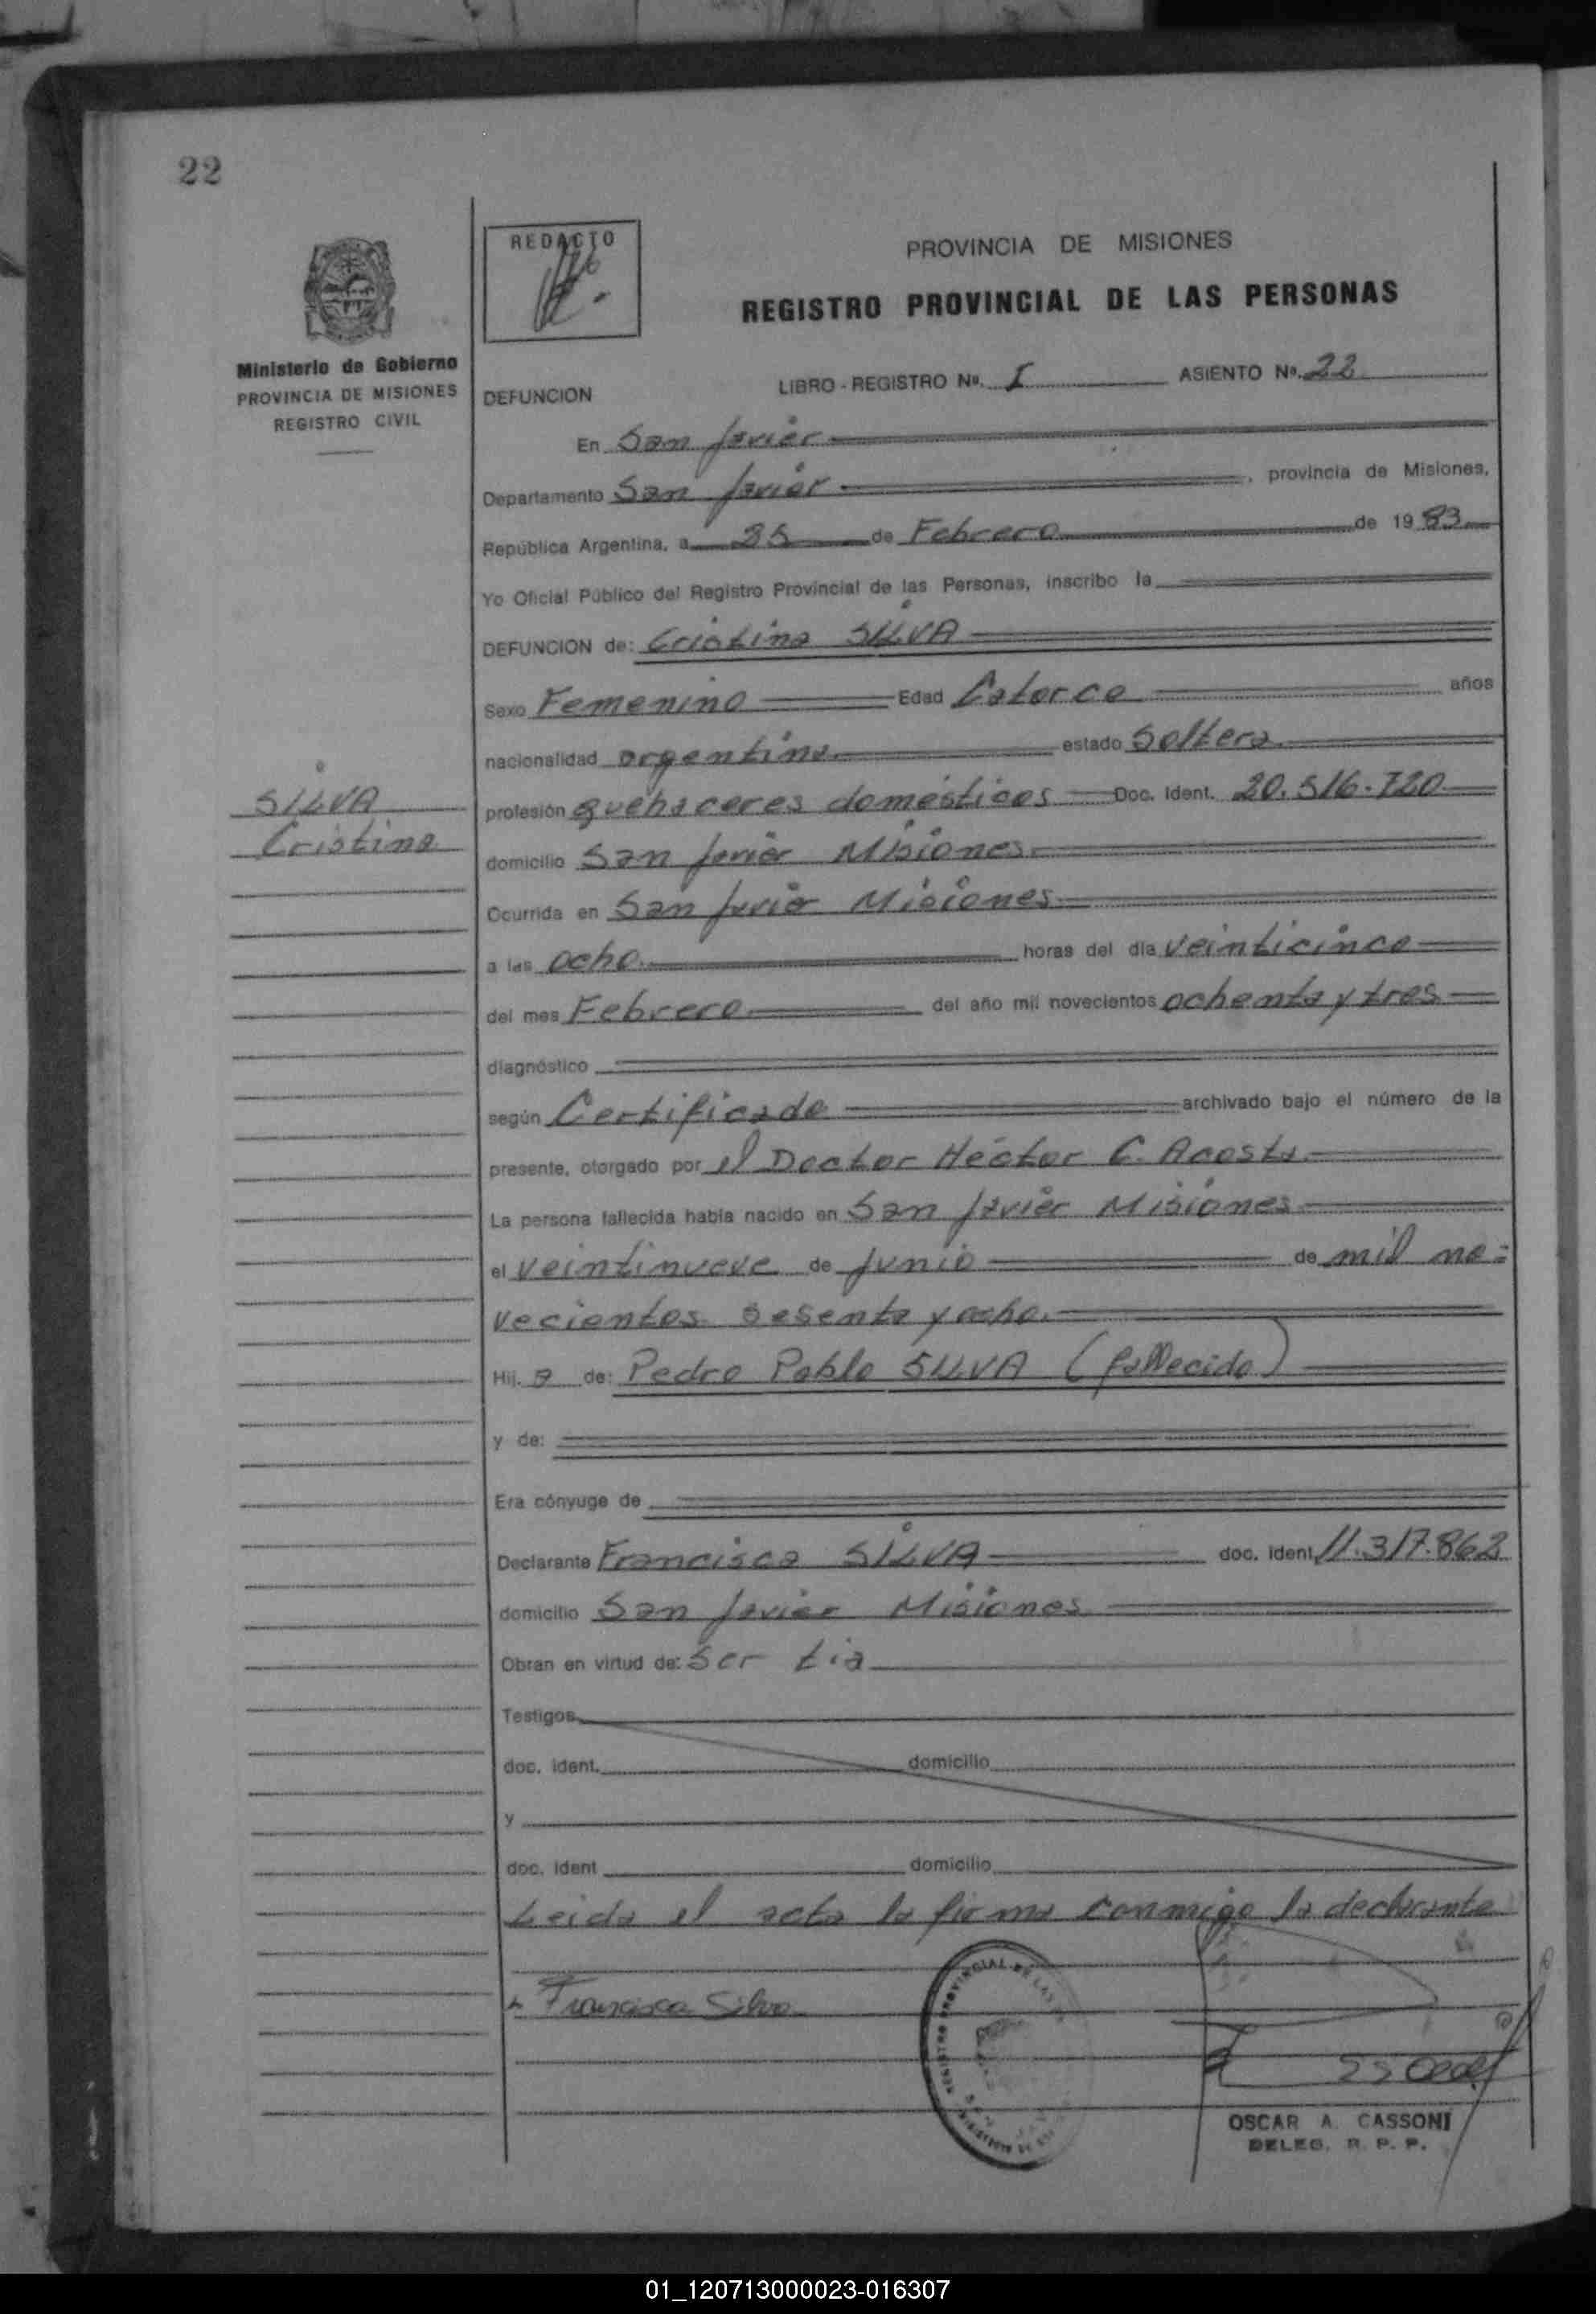 22
REDACTO
PROVINCIA DE MISIONES
REGISTRO PROVINCIAL DE LAS PERSONAS
Ministerio de Gobierno
PROVINCIA DE MISIONES
REGISTRO CIVIL
DEFUNCION
LIBRO - REGISTRO Nº. I ASIENTO Nº. 22
En San Javier
Departamento San Javier, provincia de Misiones,
República Argentina, a 25 de Febrero de 1983
Yo Oficial Público del Registro Provincial de las Personas, inscribo la
DEFUNCION de: Cristina SILVA
Sexo Femenino Edad Catorce años
nacionalidad argentina estado Soltera
SILVA
Cristina
profesión quehaceres domésticos Doc. Ident. 20.516.720
domicilio San Javier Misiones
Ocurrida en San Javier Misiones
a las ocho horas del día veinticinco
del mes Febrero del año mil novecientos ochenta y tres
diagnóstico
según Certificado archivado bajo el número de la
presente, otorgado por el Doctor Héctor C. Acosta
La persona fallecida había nacido en San Javier Misiones
el veintinueve de Junio de mil no=
vecientos sesenta y ocho.
Hij a de: Pedro Pablo SILVA (fallecido)
y de:
Era cónyuge de
Declarante Francisca SILVA doc. ident. 11.317.862
domicilio San Javier Misiones
Obran en virtud de: Ser tia
Testigos
doc. ident. domicilio
y
doc. ident domicilio
Leida el acta la firma conmigo la declarante
Francisca Silva
OSCAR A. CASSONI
DELEG. R. P. P.
01_120713000023-016307